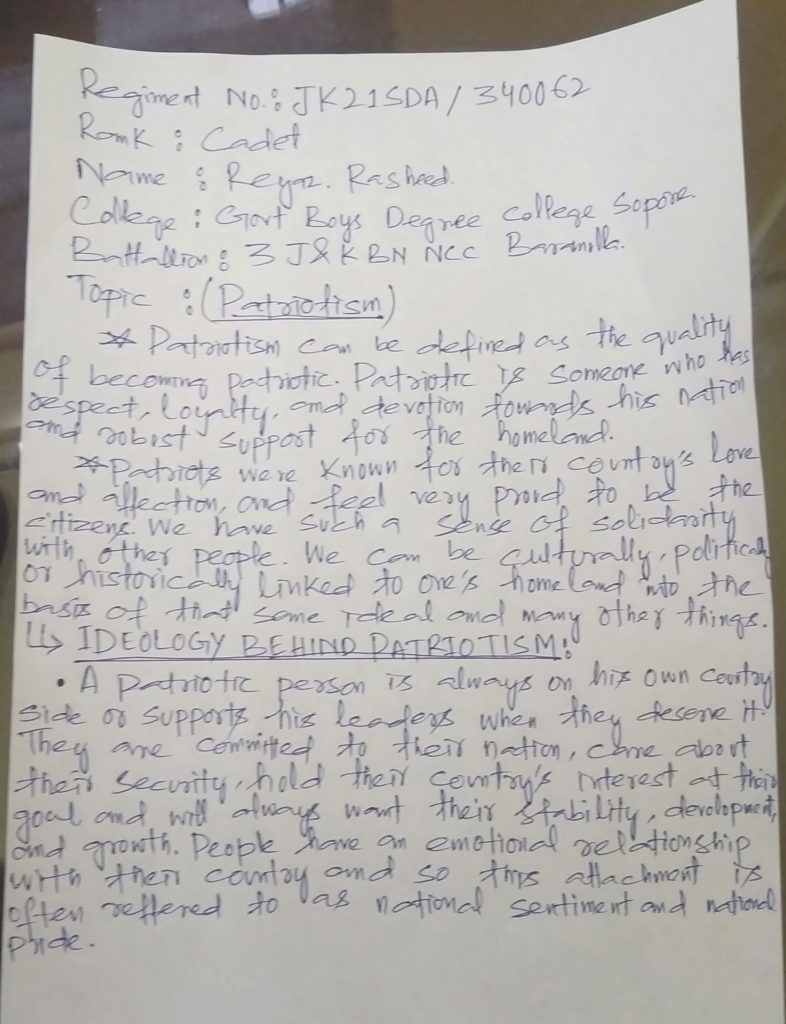 Regiment No.: JK21SDA/340062
Rank : Cadet
Name : Reyaz. Rasheed.
College : Govt Boys Degree College Sopore.
Battallion : 3 J&K BN NCC Baramulla.
Topic : (Patriotism)
* Patriotism can be defined as the quality
of becoming patriotic. Patriotic is someone who has
respect, loyalty, and devotion towards his nation
and robust support for the homeland.
* Patriots were known for their country's love
and affection, and feel very proud to be the
citizens. We have such a sense of solidarity
with other people. We can be culturally, politically
or historically linked to one's homeland into the
basis of that same ideal and many other things.
↳ IDEOLOGY BEHIND PATRIOTISM:
• A patriotic person is always on his own country
side or supports his leaders when they deserve it.
They are committed to their nation, care about
their security, hold their country's interest at their
goal and will always want their stability, development,
and growth. People have an emotional relationship
with their country and so this attachment is
often reffered to as national sentiment and national
pride.